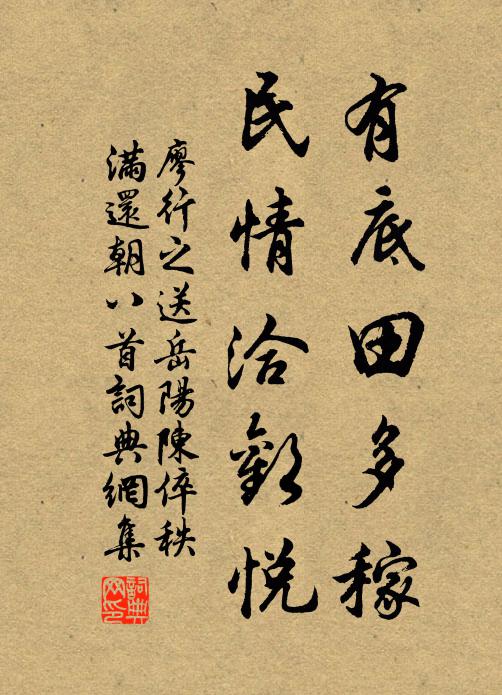 有底田多稼
民情洽歡悅
廖行之送岳陽陳倅秩
滿還朝八首詞典網集
詞典
网印